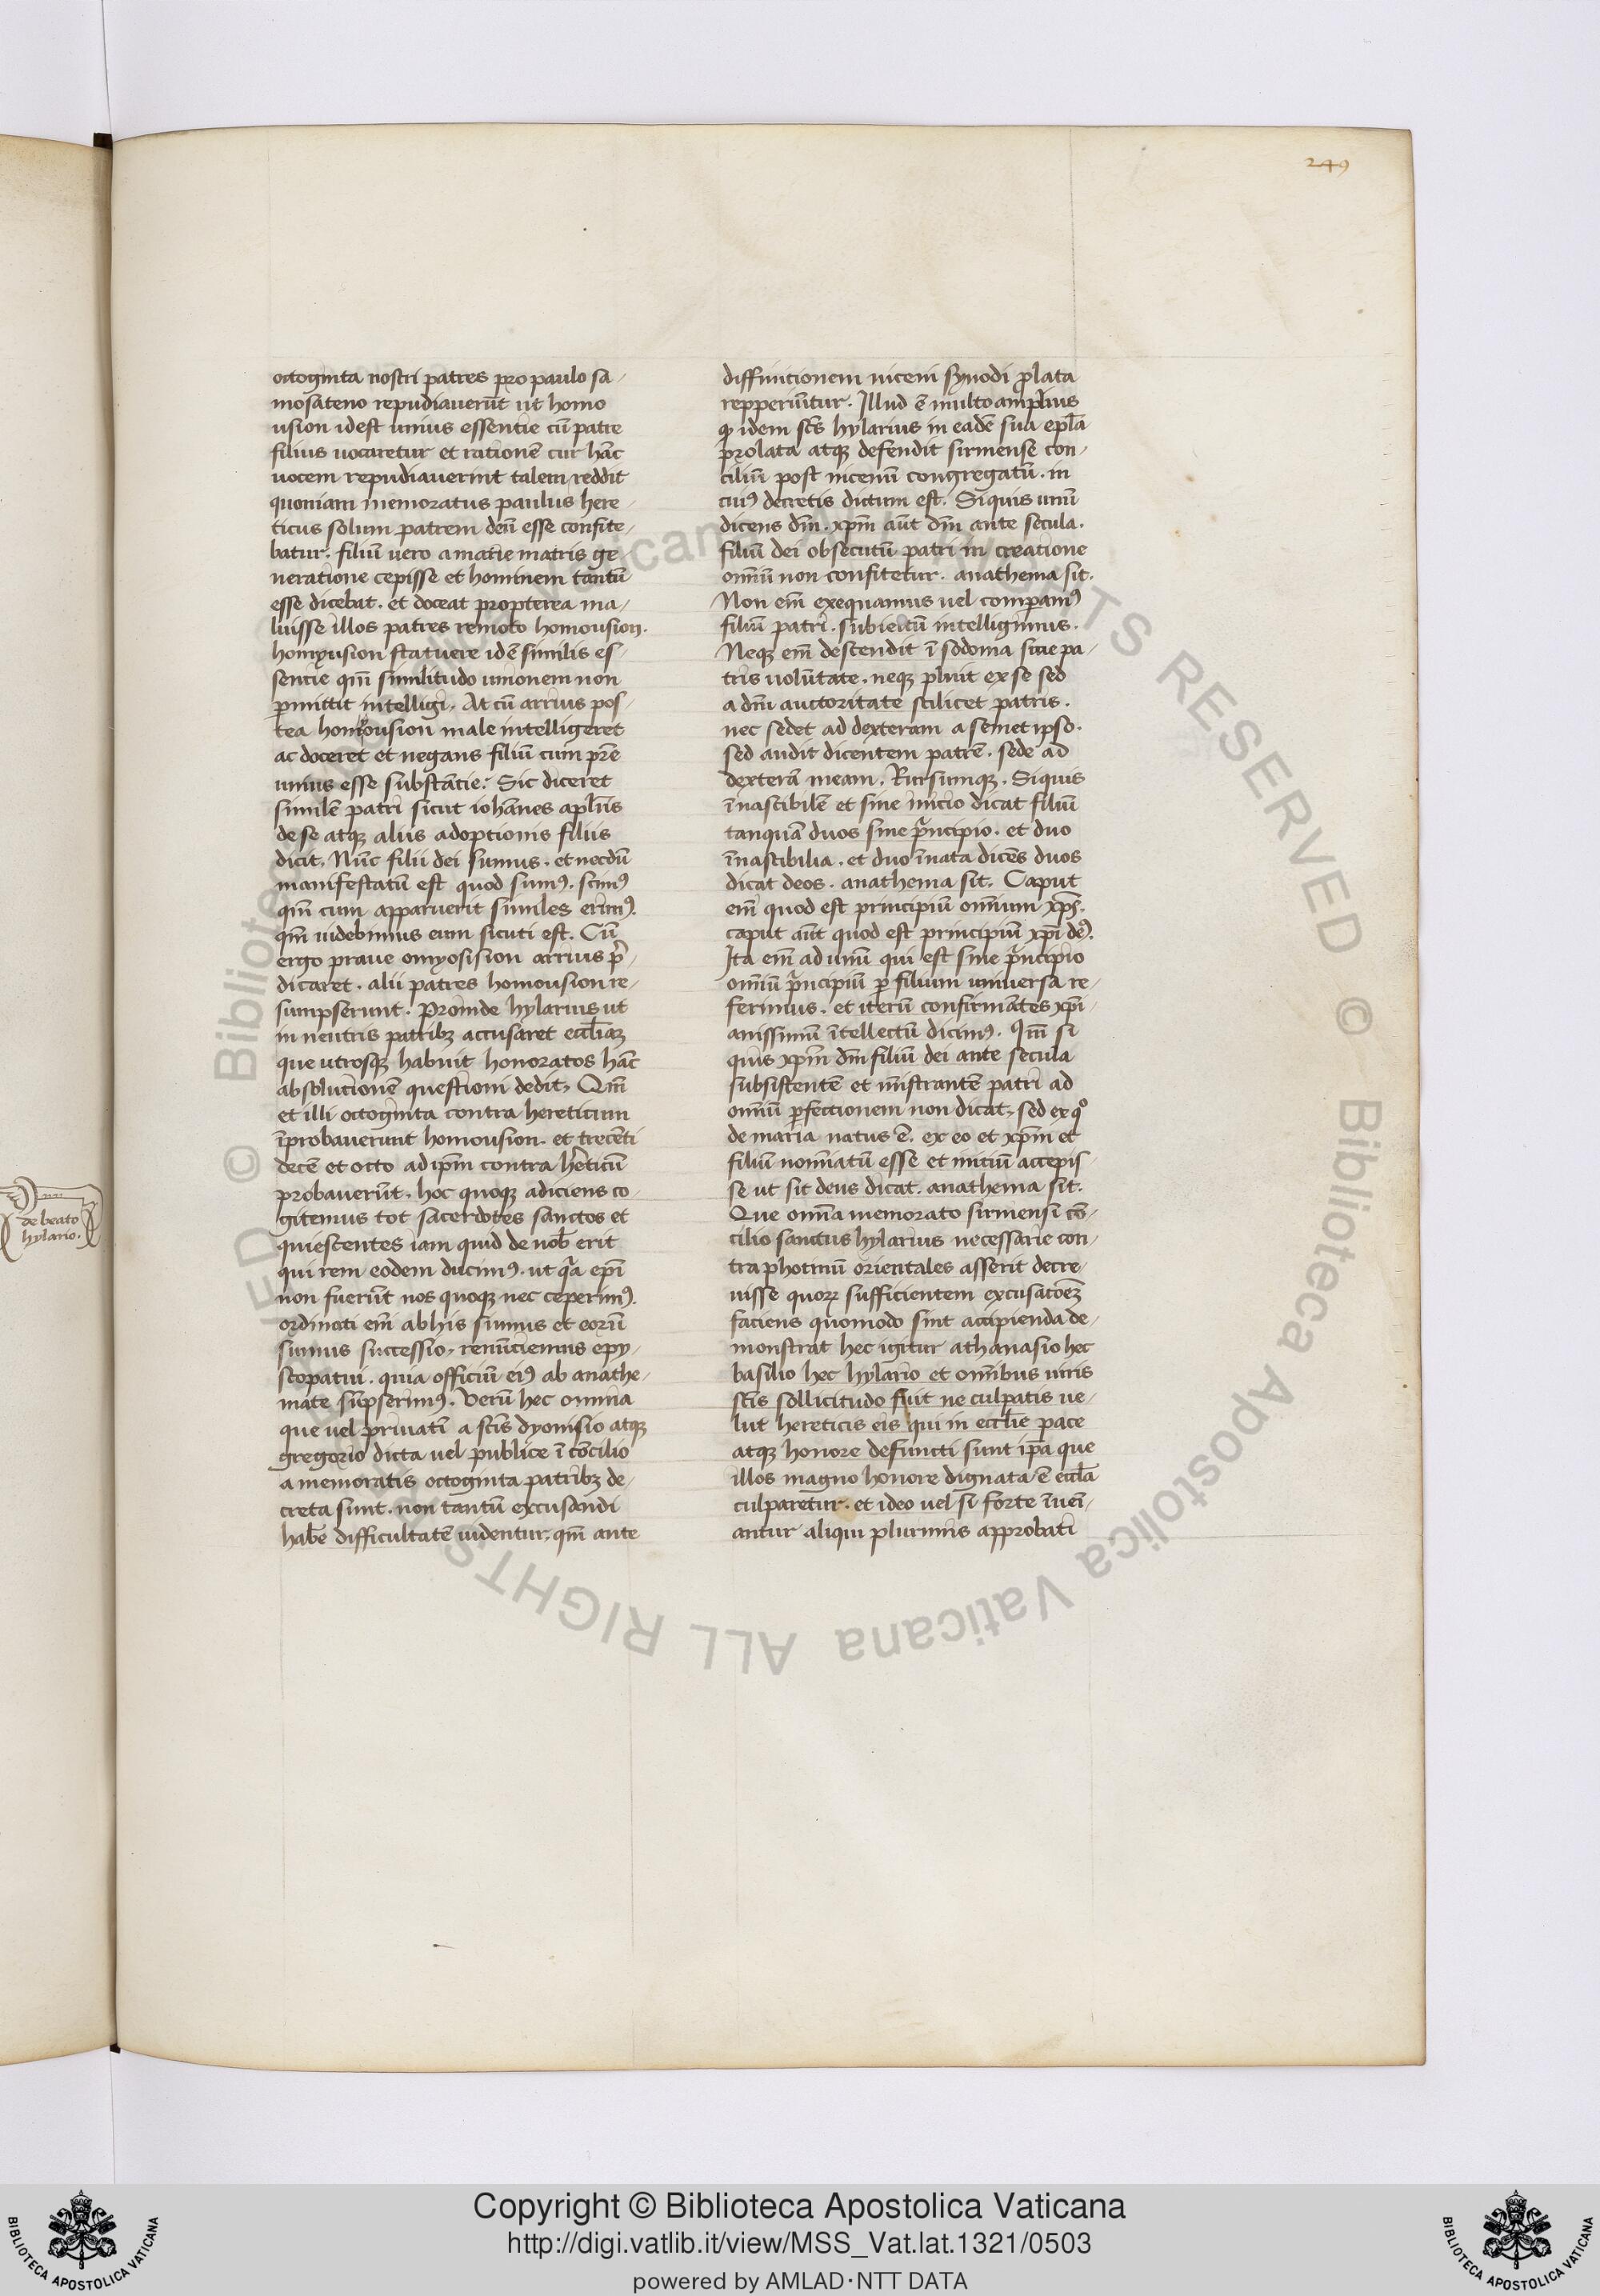 249
octoginta nostri patres pro paulo sa-
mosateno repudiauerūt ut homo
usion idest unius essentie cū patre
filius uocaretur et rationē cur hāc
uocem repudiauerint talem reddit
quoniam memoratus paulus here-
ticus solum patrem deū esse confite-
batur. filiū vero a marie matris ge-
neratione cepisse et hominem tantū
esse dicebat. et doceat propterea ma-
luisse illos patres remoto homousion.
homyusion statuere idē similis es-
sentie qm̄ similitudo unionem non
ꝑmittit intelligi. At cū arrius pos-
tea homousion male intelligeret
ac doceret et negans filiū cum pr̄e
unius esse substātie. Sic diceret
similē patri sicut iohānes apl̄us
de se atqꝫ aliis adoptionis filiis
dicit. Nūc filii dei sumus. et necdū
manifestatū est quod sumꝰ. scimꝰ
qm̄ cum apparuerit similes erimꝰ.
qm̄ uidebimus eum sicuti est. Cū
ergo praue omyosision arrius p̄-
dicaret. alii patres homousion re-
sumpserunt. Proinde hylarius ut
in neutris patribꝫ accusaret eccl̄iaꝫ
que utrosqꝫ habuit honoratos hāc
absolutionē questioni dedit. Qm̄
et illi octoginta contra hereticum
īprobauerunt homousion. et trecēti
decē et octo ad ip̄m contra h̄eticū
probauerūt. hoc quoqꝫ adiciens co-
gitemus tot sacerdotes sanctos et
quiescentes iam quid de nob̄ erit
qui rem eodem ducimꝰ. ut qͣa epī
non fuerūt nos quoqꝫ nec ceperimꝰ.
ordinati em̄ ab his sumus et eorū
sumus successio. renūciemus epy-
scopatui. quia officiū eiꝰ ab anathe-
mate sūpserimꝰ. Verū hec omnia
que uel priuatī a sc̄is dyonisio atqꝫ
gregorio dicta uel publice ī cōcilio
a memoratis octoginta patribꝫ de-
creta sunt. non tantū excusandi
hab̄e difficultatē uidentur. qm̄ ante
diffinitionem niceni synodi ꝓlata
repperiūtur. Illud ē multo amplius
ꝙ idem sc̄s hylarius in eadē sua epl̄a
prolata atqꝫ defendit sirmense con-
ciliū post nicenū congregatū. in
cuiꝰ decretis dictum est. Siquis unū
dicens dm̄. xp̄m aūt dm̄ ante secula.
filiū dei obsecutū patri in creatione
omniū non confitetur. anathema sit.
Non em̄ exequamus uel comꝑamꝰ
filiū patri. subiectū intelligimus.
Neqꝫ em̄ descendit ī sodoma sine pa-
tris volūtate. neqꝫ pluit ex se sed
a dm̄ auctoritate scilicet patris.
nec sedet ad dexteram a semet ipso.
sed audit dicentem patrē. sede ad
dexterā meam. Rursumqꝫ. Siquis
īnascibilē et sine inicio dicat filiū
tanquā duos sine pͥncipio. et duo
īnascibilia. et duo īnata dicēs duos
dicat deos. anathema sit. Caput
em̄ quod est principiū omnium xp̄s.
caput aūt quod est principiū xp̄i deꝰ.
Ita em̄ ad unū qui est sine pͥncipio
omniū pͥncipiū ꝑ filium uniuersa re-
ferimus. et iterū confirmātes xp̄i-
anissimū ītellectū dicimꝰ. Qm̄ si
quis xp̄m dm̄ filiū dei ante secula
subsistentē et mīstrantē patri ad
omniū ꝑfectionem non dicat. sed ex qͦ
de maria natus ē. ex eo et xp̄m et
filiū nominatū esse et initiū accepis-
se ut sit deus dicat. anathema sit.
Que omnia memorato sirmensi cō-
cilio sanctus hylarius necessarie con-
tra photinū orientales asserit decre-
uisse quoꝝ sufficientem excusatoēꝫ
faciens quomodo sint accipienda de-
monstrat hec igitur athanasio hec
basilio hec hylario et omnibus uiris
sc̄is sollicitudo fuit ne culpatis ue-
lut hereticis eis qui in eccl̄ie pace
atqꝫ honore defuncti sunt ip̄a que
illos magno honore dignata ē eccl̄a
culparetur. et ideo uel si forte īueī-
antur aliqui plurimis approbati
de beato
hylario.
© Biblioteca Apostolica Vaticana ALL RIGHTS RESERVED © Biblioteca Apostolica Vaticana ALL RIGHTS RESERVED
Copyright © Biblioteca Apostolica Vaticana
http://digi.vatlib.it/view/MSS_Vat.lat.1321/0503
powered by AMLAD·NTT DATA
BIBLIOTECA APOSTOLICA VATICANA
BIBLIOTECA APOSTOLICA VATICANA